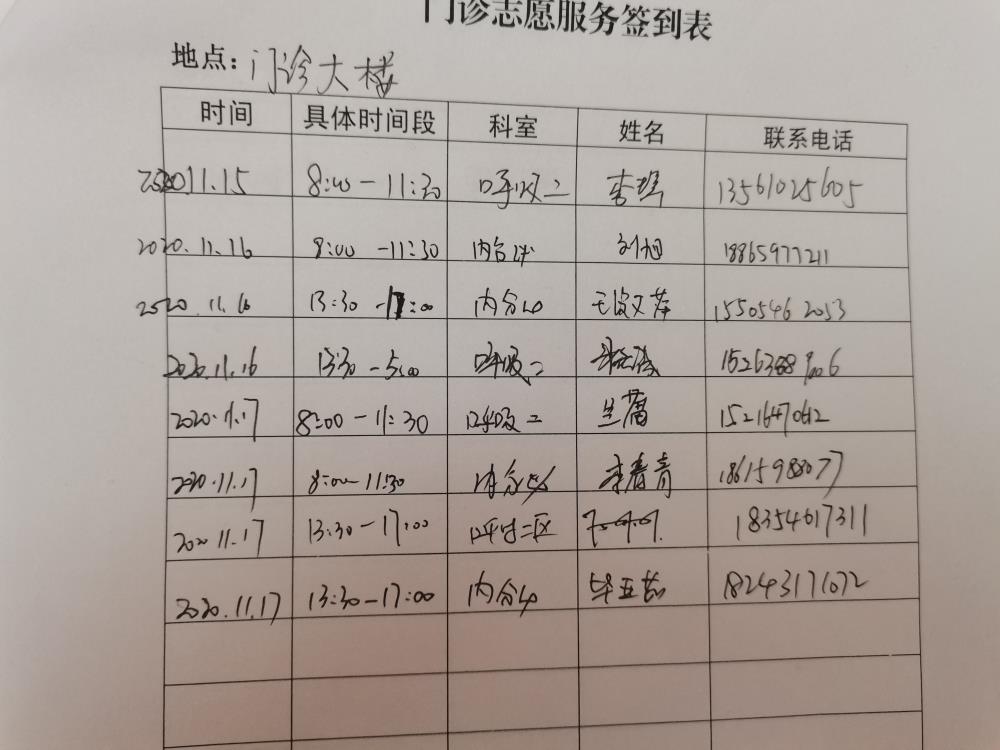 门诊志愿服务签到表
地点：门诊大楼
时间 具体时间段 科室 姓名 联系电话
2020.11.15 8:00-11:30 呼吸二 李瑶 13561025605
2020.11.16 8:00-11:30 内分泌 刘旭 18865977211
2020.11.16 13:30-17:00 内分泌 15505462053
2020.11.16 13:30-5:00 呼吸二
2020.11.17 8:00-11:30 呼吸二 兰蕾
2020.11.17 8:00-11:30 内分泌 李春青 18615988077
2020.11.17 13:30-17:00 呼吸二区 18354617311
2020.11.17 13:30-17:00 内分泌 18243171072